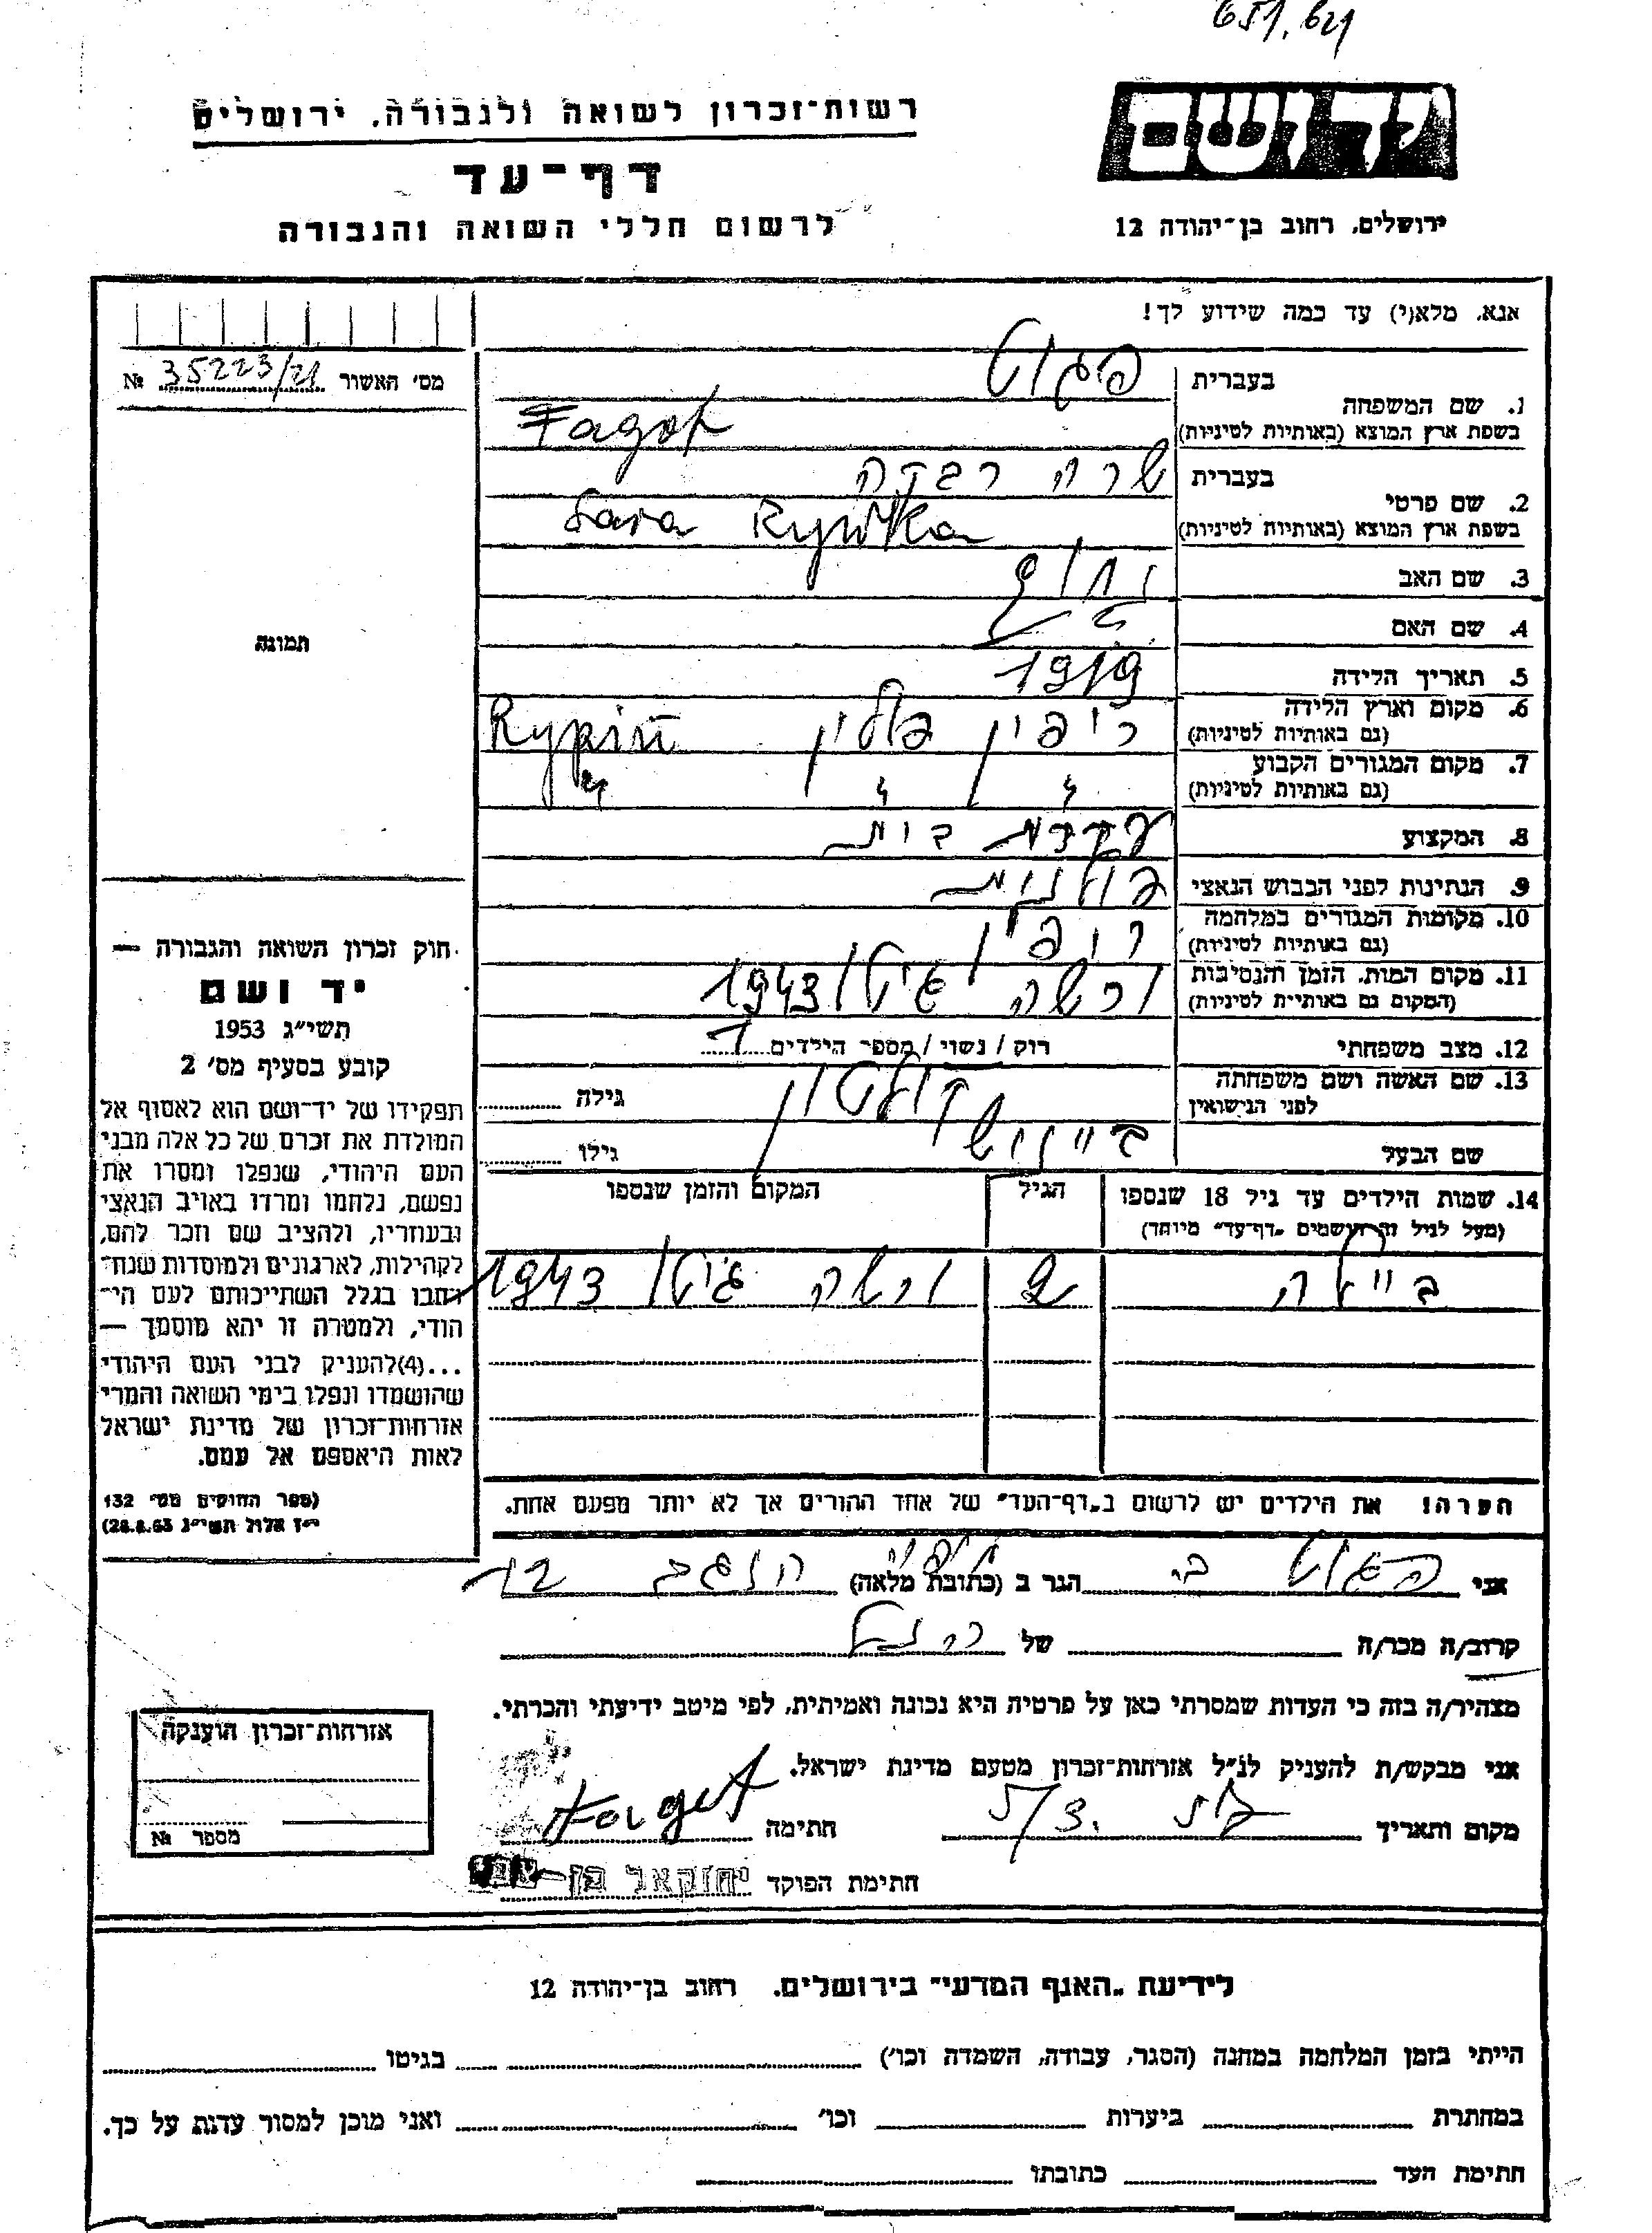 651.621
רשות־זכרון לשואה ולגבורה. ירושלים
יד ושם
דף־עד
לרשום חללי השואה והגבורה
ירושלים, רחוב בן־יהודה 12
אנא, מלא(י) עד כמה שידוע לך!
מס׳ האשור 35223/21 №
בעברית פגוט
1. שם המשפחה
בשפת ארץ המוצא (באותיות לטיניות) Fagot
בעברית שרה רבקה
2. שם פרטי
בשפת ארץ המוצא (באותיות לטיניות) Sara Rywka
3. שם האב
4. שם האם
5. תאריך הלידה 1919
6. מקום וארץ הלידה ריפין פולין Rypin
(גם באותיות לטיניות)
7. מקום המגורים הקבוע " " "
(גם באותיות לטיניות)
8. המקצוע עקרת בית
9. הנתינות לפני הכבוש הנאצי פולנית
10. מקומות המגורים במלחמה ריפין
(גם באותיות לטיניות)
11. מקום המות, הזמן והנסיבות ורשה גיטו 1943
(המקום גם באותיות לטיניות)
12. מצב משפחתי רוק / נשוי / מספר הילדים 1
13. שם האשה ושם משפחתה
לפני הנישואין גילה
שם הבעל גילו
14. שמות הילדים עד גיל 18 שנספו הגיל המקום והזמן שנספו
(מעל לגיל זה רושמים „דף־עד״ מיוחד)
ביילה ורשה גיטו 1943
הערה! את הילדים יש לרשום ב„דף־העד״ של אחד ההורים אך לא יותר מפעם אחת.
תמונה
חוק זכרון השואה והגבורה —
יד ושם
תשי״ג 1953
קובע בסעיף מס׳ 2
תפקידו של יד־ושם הוא לאסוף אל
המולדת את זכרם של כל אלה מבני
העם היהודי, שנפלו ומסרו את
נפשם, נלחמו ומרדו באויב הנאצי
ובעוזריו, ולהציב שם וזכר להם,
לקהילות, לארגונים ולמוסדות שנח־
רבו בגלל השתייכותם לעם הי־
הודי, ולמטרה זו יהא מוסמך —
...(4)להעניק לבני העם היהודי
שהושמדו ונפלו בימי השואה והמרי
אזרחות־זכרון של מדינת ישראל
לאות היאספם אל עמם.
(ספר החוקים מס׳ 132
י״ז אלול תשי״ג 28.8.53)
אני פגוט הגר ב (כתובת מלאה) הנגב 12
קרוב/ה מכר/ה של
מצהיר/ה בזה כי העדות שמסרתי כאן על פרטיה היא נכונה ואמיתית, לפי מיטב ידיעתי והכרתי.
אני מבקש/ת להעניק לנ״ל אזרחות־זכרון מטעם מדינת ישראל.
מקום ותאריך חתימה
חתימת הפוקד יחזקאל בן
אזרחות־זכרון הוענקה
מספר №
לידיעת „האגף המדעי״ בירושלים. רחוב בן־יהודה 12
הייתי בזמן המלחמה במחנה (הסגר, עבודה, השמדה וכו׳) בגיטו
במחתרת ביערות וכו׳ ואני מוכן למסור עדות על כך.
חתימת העד כתובתו